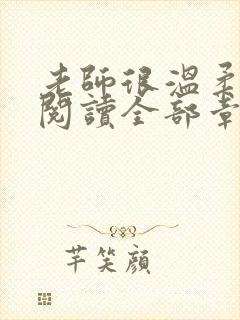 老師很溫柔
閱讀全部章
芊笑顔